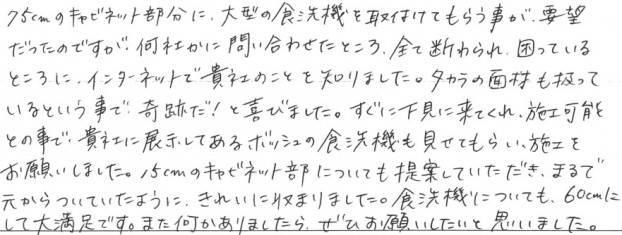 75cmのキャビネット部分に、大型の食洗機を取付けてもらう事が、要望
だったのですが、何社かに問い合わせたところ、全て断わられ、困っている
ところに、インターネットで貴社のことを知りました。タカラの面材も扱って
いるという事で、奇跡だ!と喜びました。すぐに下見に来てくれ、施工可能
との事で、貴社に展示してあるボッシュの食洗機も見せてもらい、施工を
お願いしました。15cmのキャビネット部についても提案していただき、まるで
元からついていたように、きれいに収まりました。食洗機についても、60cmに
して大満足です。また何かありましたら、ぜひお願いしたいと思いました。